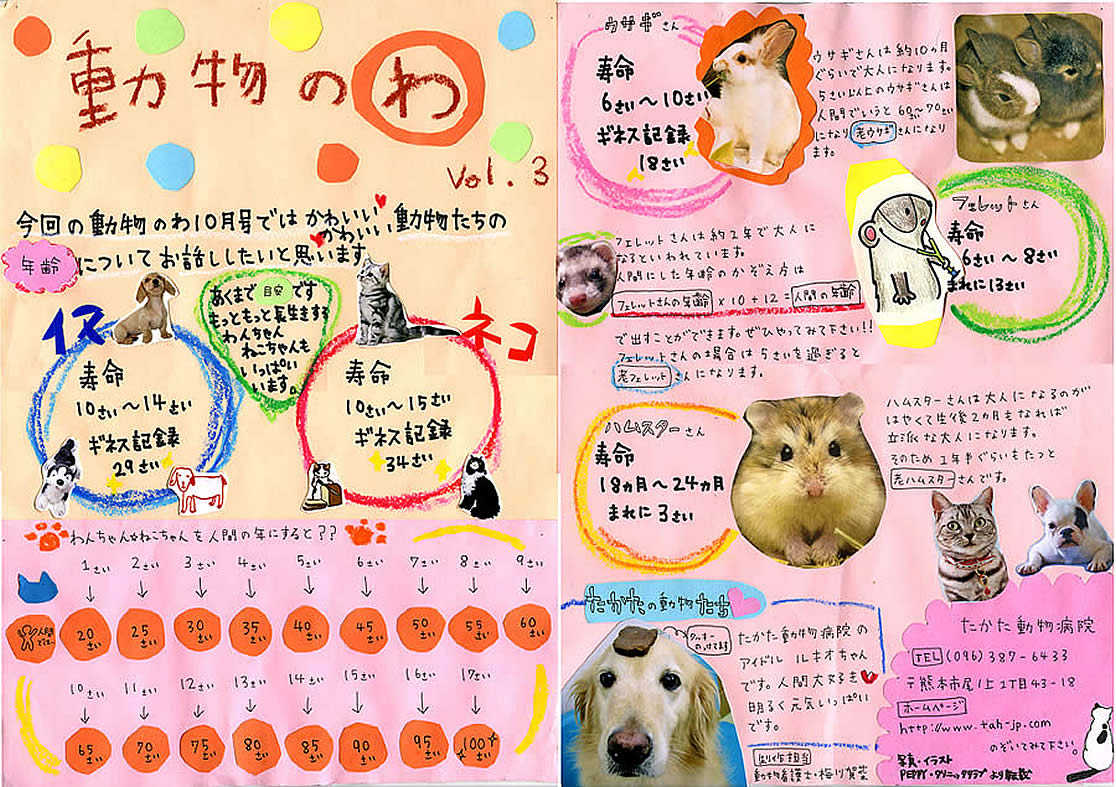 動物のわ
Vol.3
今回の動物のわ10月号では かわいい かわいい 動物たちの
年齢 についてお話ししたいと思います
イヌ
寿命
10さい〜14さい
ギネス記録
29さい
あくまで目安です
もっともっと長生きする
わんちゃん
ねこちゃんも
いっぱい
います。
ネコ
寿命
10さい〜15さい
ギネス記録
34さい
わんちゃん☆ねこちゃんを人間の年にすると??
1さい 2さい 3さい 4さい 5さい 6さい 7さい 8さい 9さい
人間
20さい 25さい 30さい 35さい 40さい 45さい 50さい 55さい 60さい
10さい 11さい 12さい 13さい 14さい 15さい 16さい 17さい
65さい 70さい 75さい 80さい 85さい 90さい 95さい 100さい
ウサギさん
寿命
6さい〜10さい
ギネス記録
18さい
ウサギさんは約10ヵ月
ぐらいで大人になります。
5さい以上のウサギさんは
人間でいうと60〜70さい
になり老ウサギさんになり
ます。
フェレットさん
寿命
6さい〜8さい
まれに13さい
フェレットさんは約1年で大人に
なるといわれています。
人間にした年齢のかぞえ方は
フェレットさんの年齢×10+12=人間の年齢
で出すことができます。ぜひやってみて下さい!!
フェレットさんの場合は5さいを過ぎると
老フェレットさんになります。
ハムスターさん
寿命
18ヵ月〜24ヵ月
まれに3さい
ハムスターさんは大人になるのが
はやくて生後2ヵ月もなれば
立派な大人になります。
そのため1年半ぐらいもたつと
老ハムスターさんです。
たかたの動物たち
クッキー
のってます
たかた動物病院の
アイドル ルキオちゃん
です。人間大好き
明るく元気いっぱい
です。
製作担当
動物看護士・梅川賀菜
たかた動物病院
TEL (096)387-6433
〒熊本市尾ノ上1丁目43-18
ホームページ
http://www.tah-jp.com
のぞいてみて下さい。
写真・イラスト
PEPPY・クリニッククラブより転載